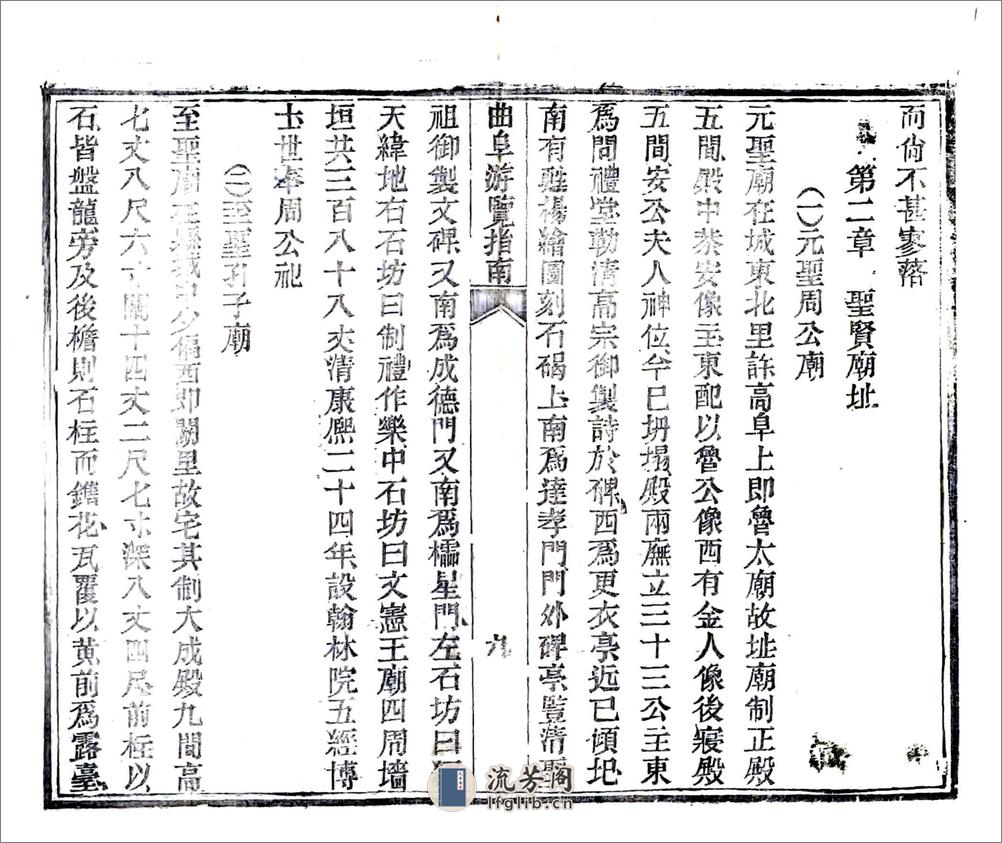 而尙不甚寥落
第二章　聖賢廟址
(一)元聖周公廟
元聖廟在城東北里許高阜上即魯太廟故址廟制正殿
五間殿中恭安像主東配以魯公像西有金人像後寢殿
五間安公夫人神位今已坍塌殿兩廡立三十三公主東
爲問禮堂勒清高宗御製詩於碑西爲更衣亭近已頃圯
南有甦楊繪圖刻石碣上南爲達孝門門外碑亭豎清聖
曲阜游覽指南
九
祖御製文碑又南爲成德門又南爲櫺星門左石坊曰經
天緯地右石坊曰制禮作樂中石坊曰文憲王廟四周墻
垣共三百八十八丈清康熙二十四年設翰林院五經博
士世奉周公祀
(二)至聖孔子廟
至聖廟在縣城中少偏西即闕里故宅其制大成殿九間高
七丈八尺六寸闊十四丈二尺七寸深八丈四尺前柱以
石皆盤龍旁及後檐則石柱而鐫花瓦覆以黃前爲露臺
流芳閣
lfglib.cn